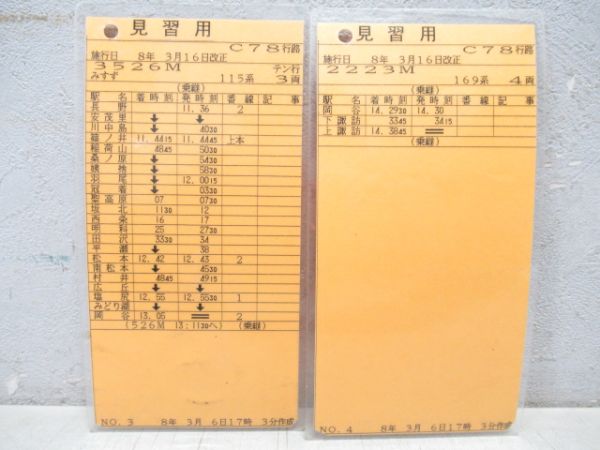 見習用
C78行路
施行日 8年 3月16日改正
3526M テン行
みすず 115系 3両
(乗継)
駅名 着時刻 発時刻 番線 記事
長野 11.36 2
安茂里 ↓ ↓
川中島 ↓ 4030
篠ノ井 11.4415 11.4445 上本
稲荷山 4845 5030
桑ノ原 ↓ 5430
姨捨 ↓ 5830
羽尾 ↓ 12.0015
冠着 ↓ 0330
聖高原 07 0730
坂北 1130 12
西条 16 17
明科 25 2730
田沢 3330 34
平瀬 ↓ 38
松本 12.42 12.43 2
南松本 ↓ 4530
村井 4845 4915
広丘 ↓ ↓
塩尻 12.55 12.5530 1
みどり湖 ↓ ↓
岡谷 13.05 = 2
(526M 13:1130へ) (乗継)
NO.3 8年 3月 6日17時 3分作成
見習用
C78行路
施行日 8年 3月16日改正
2223M
169系 4両
(乗継)
駅名 着時刻 発時刻 番線 記事
岡谷 14.2930 14.30
下諏訪 3345 3415
上諏訪 14.3845 =
(乗継)
NO.4 8年 3月 6日17時 3分作成